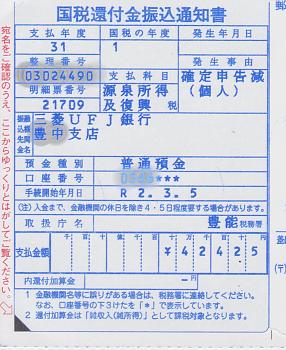 国税還付金振込通知書
支払年度 国税の年度 発生年月日
31 1
整理番号 支払科目 発生事由
03024490 確定申告減
明細票番号 源泉所得 (個人)
21709 及復興 税
振込先金融機関 三菱UFJ銀行
豊中支店
預金種別 普通預金
口座番号 ***
手続開始年月日 R 2. 3. 5
(注)入金まで、金融機関の休日を除き4・5日程度要する場合があります。
取扱庁名 豊能 税務署
支払金額 千 百 十 億 千 百 十 万 千 百 十 円
¥42425
内還付加算金 −
1 金融機関名等に誤りがある場合は、税務署に連絡してください。
なお、口座番号の下3けたを「*」で表示しています。
2 還付加算金は「雑収入(雑所得)」として課税対象となります。
宛名をご確認のうえ、ここからゆっくりとはがしてご覧ください。